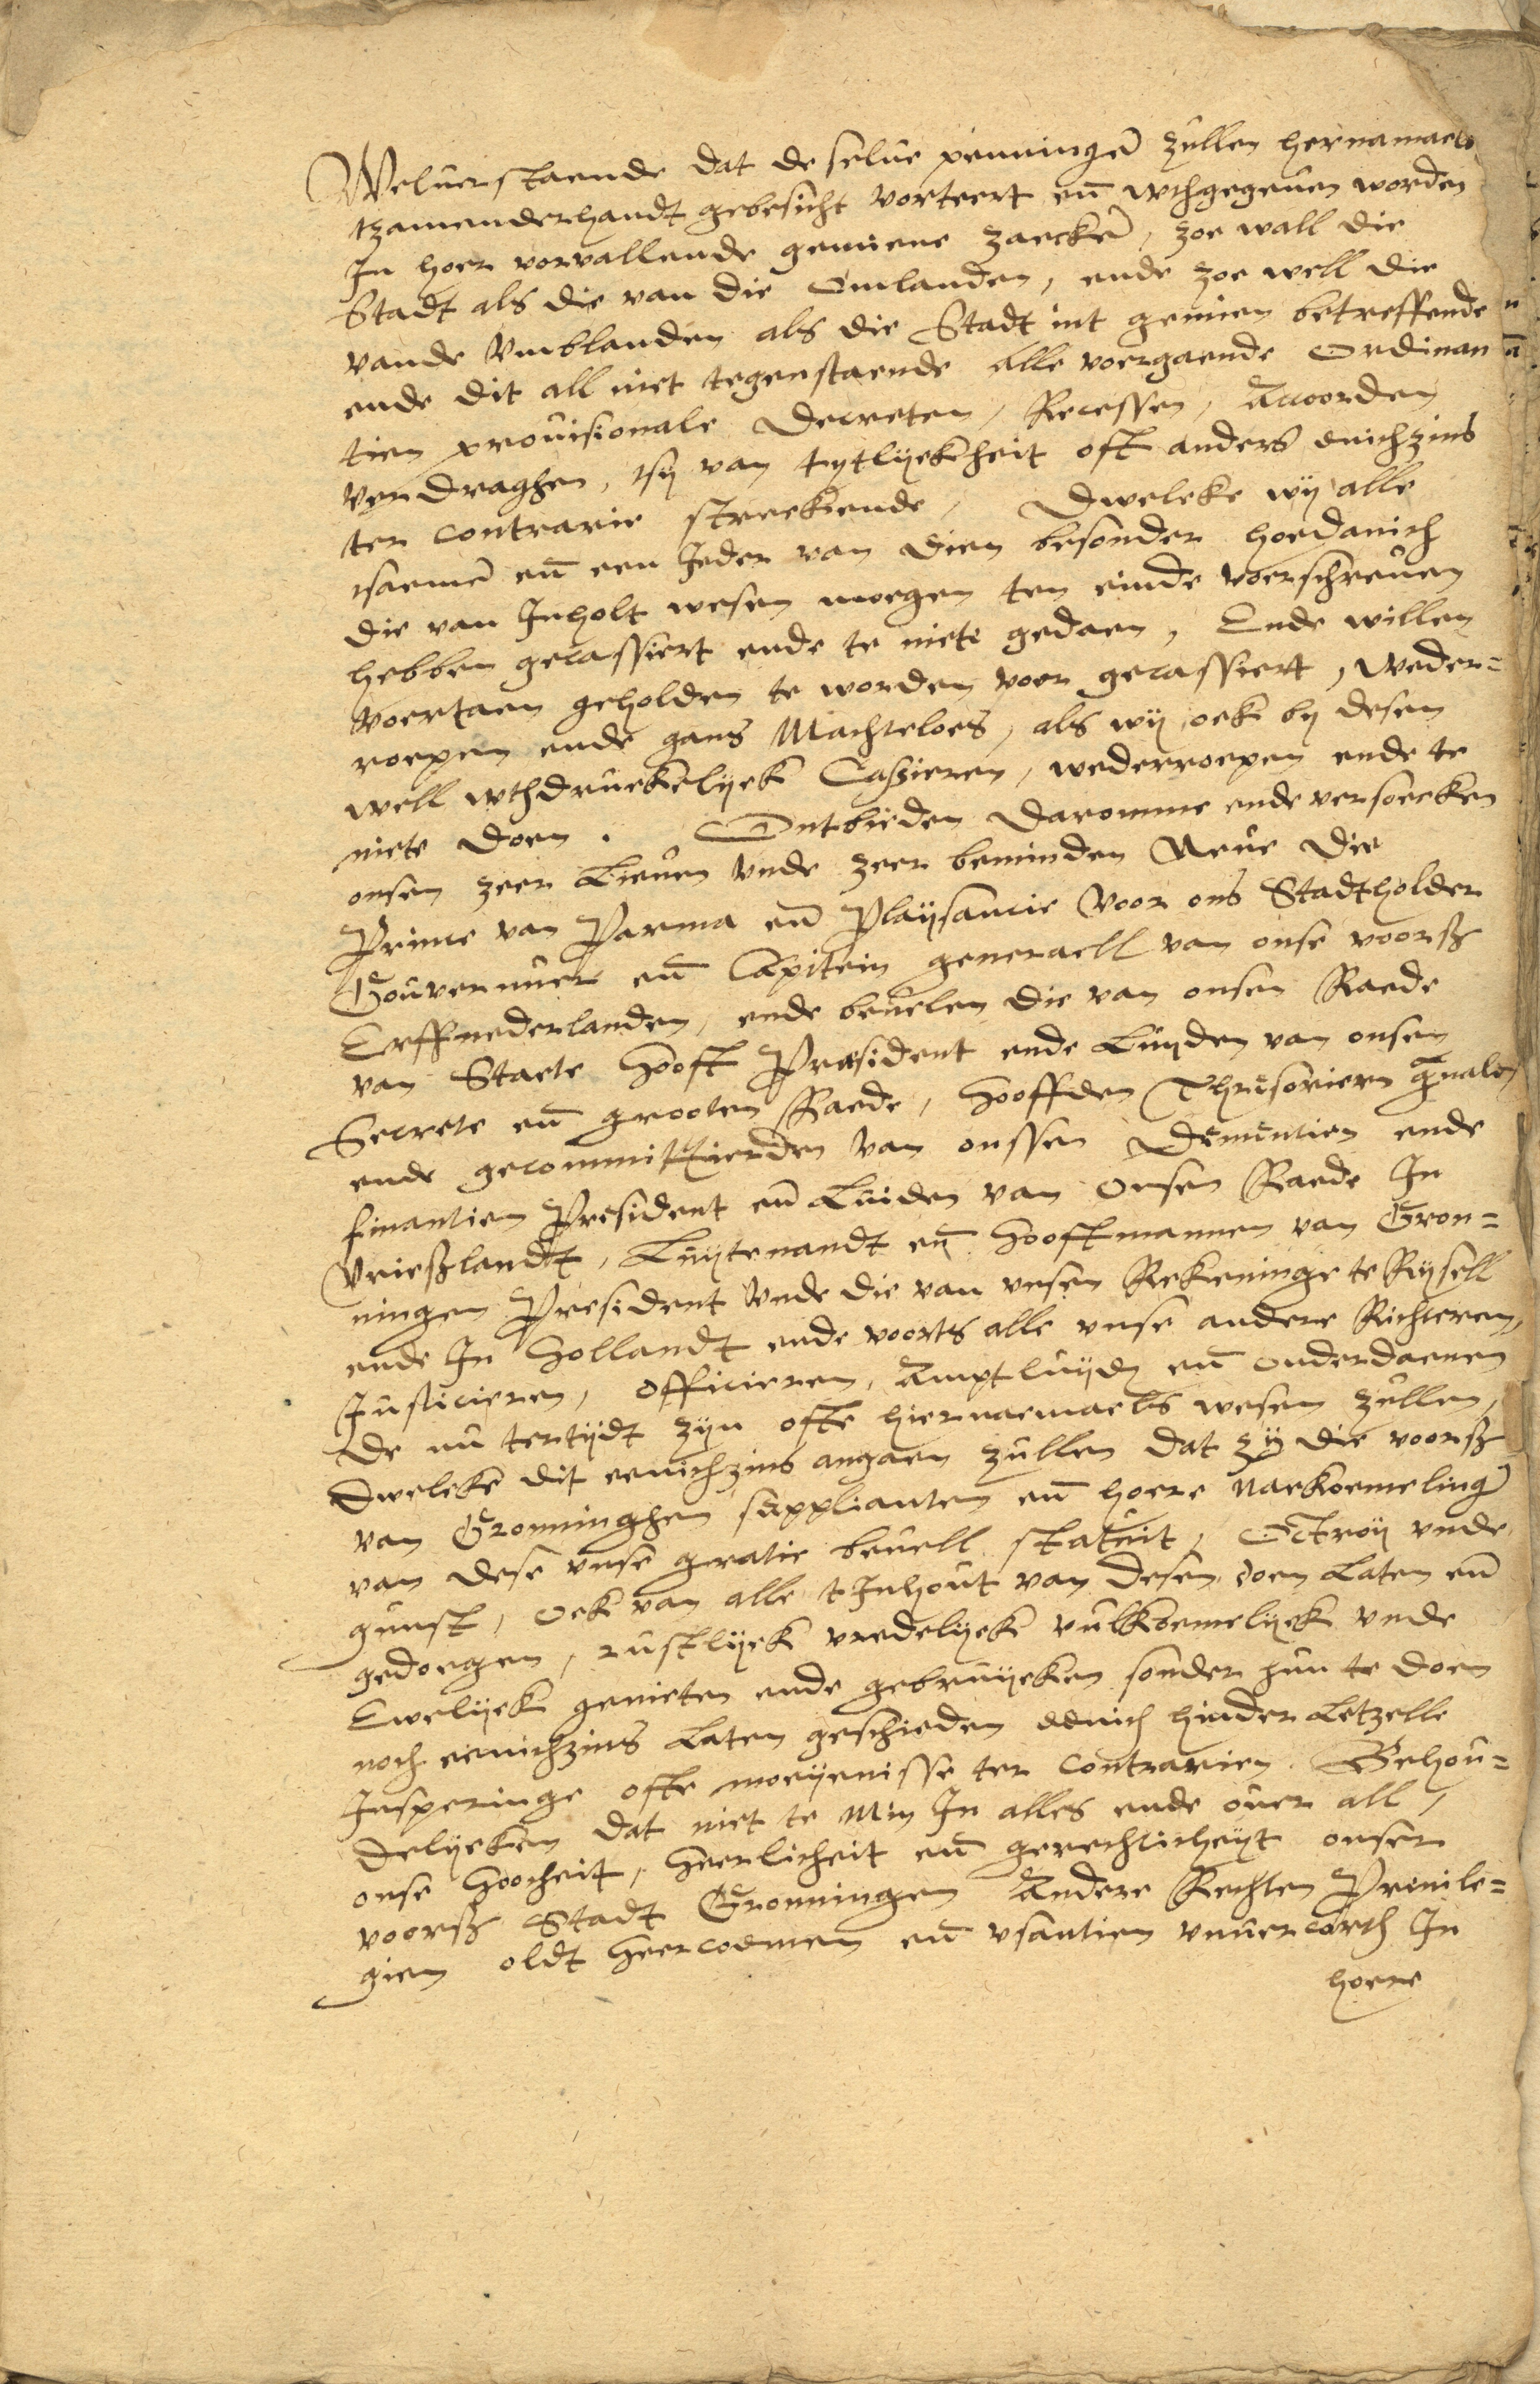 Weluerstaende dat de selue penningē zullen hernamaels
tzamenderhandt gebesicht vorteert eñ wthgegeuen worden
In hoer vorvallende gemiene zaeckē, zoe wall die
Stadt als die van die Omlanden, ende zoe well die
vande Vmblanden als die Stadt int gemien betreffende
ende dit all niet tegenstaende alle voergaende Ordinan
tien prouisionale Decreten, Recessen, Accorden
verdraghen, tsy van tytlyckheit oft anders enichzins
ter contrarie streckende, Dwelcke wij alle
tsaemē eñ een Jeder van dien besonder hoedanich
die van Inholt wesen moegen ten einde voerschreuen
hebben gecassiert ende te niete gedaen, Ende willen
voertaen geholden te worden voer gecassiert, weder=
roepen ende gans Machteloes, als wij oek by desen
well wthdruckelyck Casszieren, wederroepen ende te
niete doen. Ontbieden daromme ende versoecken
onsen zeer Lieuen vnde zeer beminden Neue die
Prince van Parma eñ Playsancie voor ons Stadtholder
Gouuernuer eñ Capitein generaell van onse voorsz
Erffnederlanden, ende beuelen die van onsen Raede
van Staete Hooft President ende Luyden van onsen
Secrete eñ grooten Raede, Hooffden Thresorieren gn̄ale
ende gecommittierden van onssen Demeutien ende
finantien President eñ Luiden van Onsen Raede In
Vrieszlandt, Luytenandt eñ Hooftmannen van Gron=
ningen President vnde die van vnsen Rekeninge te Rysell
ende In Hollandt ende voorts alle vnse andere Richteren,
Justicieren, Officieren, Amptluyden eñ onderdaenen
de nu tertijdt zijn ofte hiernaemaels wesen zullen,
Dwelcke dit eenichzins angaen zullen dat zij die voorsz
van Gronninghen supplianten eñ hoere naekoemelingē
van dese vnse gratie beuell statuit, Octroy vnde
gunst, oek van alle t Inhout van desen doen Laten eñ
gedoegen, rustlyck vredelyck vulkoemelyck vnde
Ewelyck genieten ende gebruycken sonder hun te doen
noch eenichzins Laten geschieden eenich hinder Letzelle
Insperinge ofte moeyenisse ter contrarien. Behou=
delycken dat niet te Min In alles ende ouer all,
onse Hoocheit, Heerlicheit eñ gerechticheyt onser
voorsz Stadt Gronningen Andere Rechten Preuile=
gien oldt Heercoemen eñ vsantien vnuercorth In
hoere